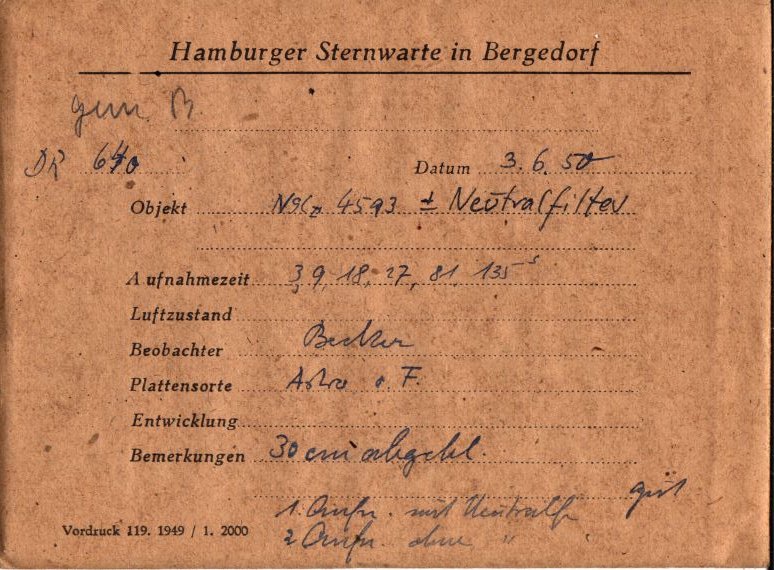 Hamburger Sternwarte in Bergedorf
gem. B.
DR 640 Datum 3.6.50
Objekt NGC 4593 ± Neutralfilter
Aufnahmezeit 3, 9, 18, 27, 81, 135 s
Luftzustand
Beobachter Becker
Plattensorte Astro o. F.
Entwicklung
Bemerkungen 30 cm abgebl.
gut
1. Aufn. mit Neutralf
2 Aufn. ohne "
Vordruck 119. 1949 / 1. 2000